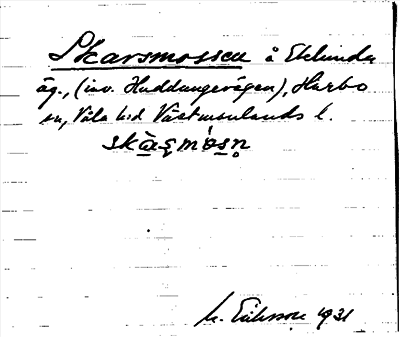 Skarsmossen å Eklunda
äg., (inv. Huddungevägen), Harbo
sn, Våla hd Västmanlands l.
skàʂmósn̥
M. Eriksson 1931